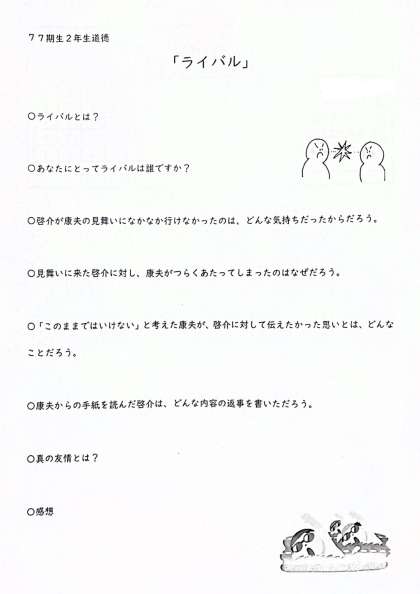 77期生2年生道徳
「ライバル」
○ライバルとは？
○あなたにとってライバルは誰ですか？
○啓介が康夫の見舞いになかなか行けなかったのは、どんな気持ちだったからだろう。
○見舞いに来た啓介に対し、康夫がつらくあたってしまったのはなぜだろう。
○「このままではいけない」と考えた康夫が、啓介に対して伝えたかった思いとは、どんな
ことだろう。
○康夫からの手紙を読んだ啓介は、どんな内容の返事を書いただろう。
○真の友情とは？
○感想